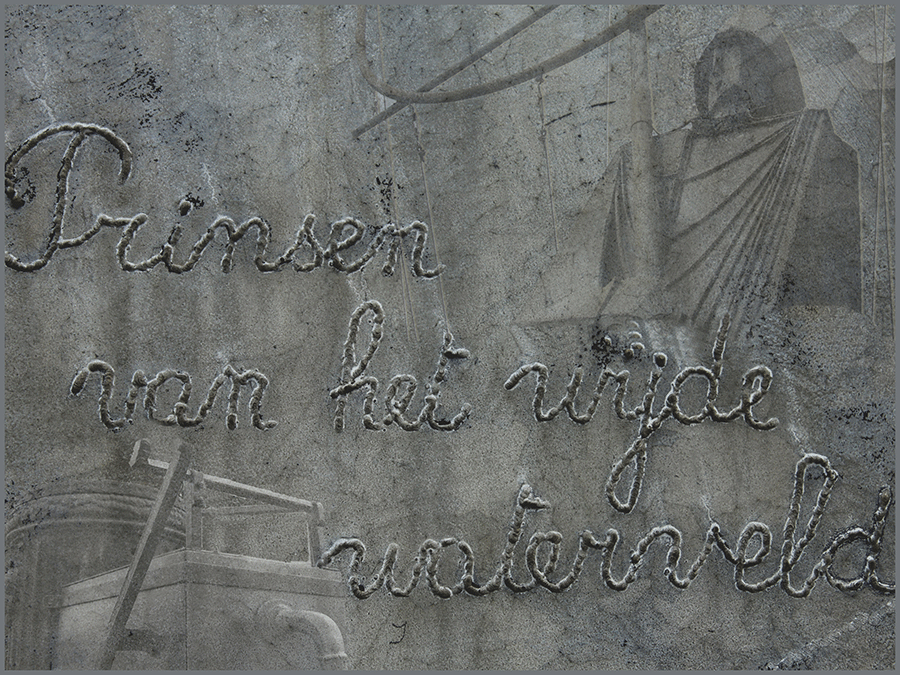 Prinsen
van het wijde
waterveld